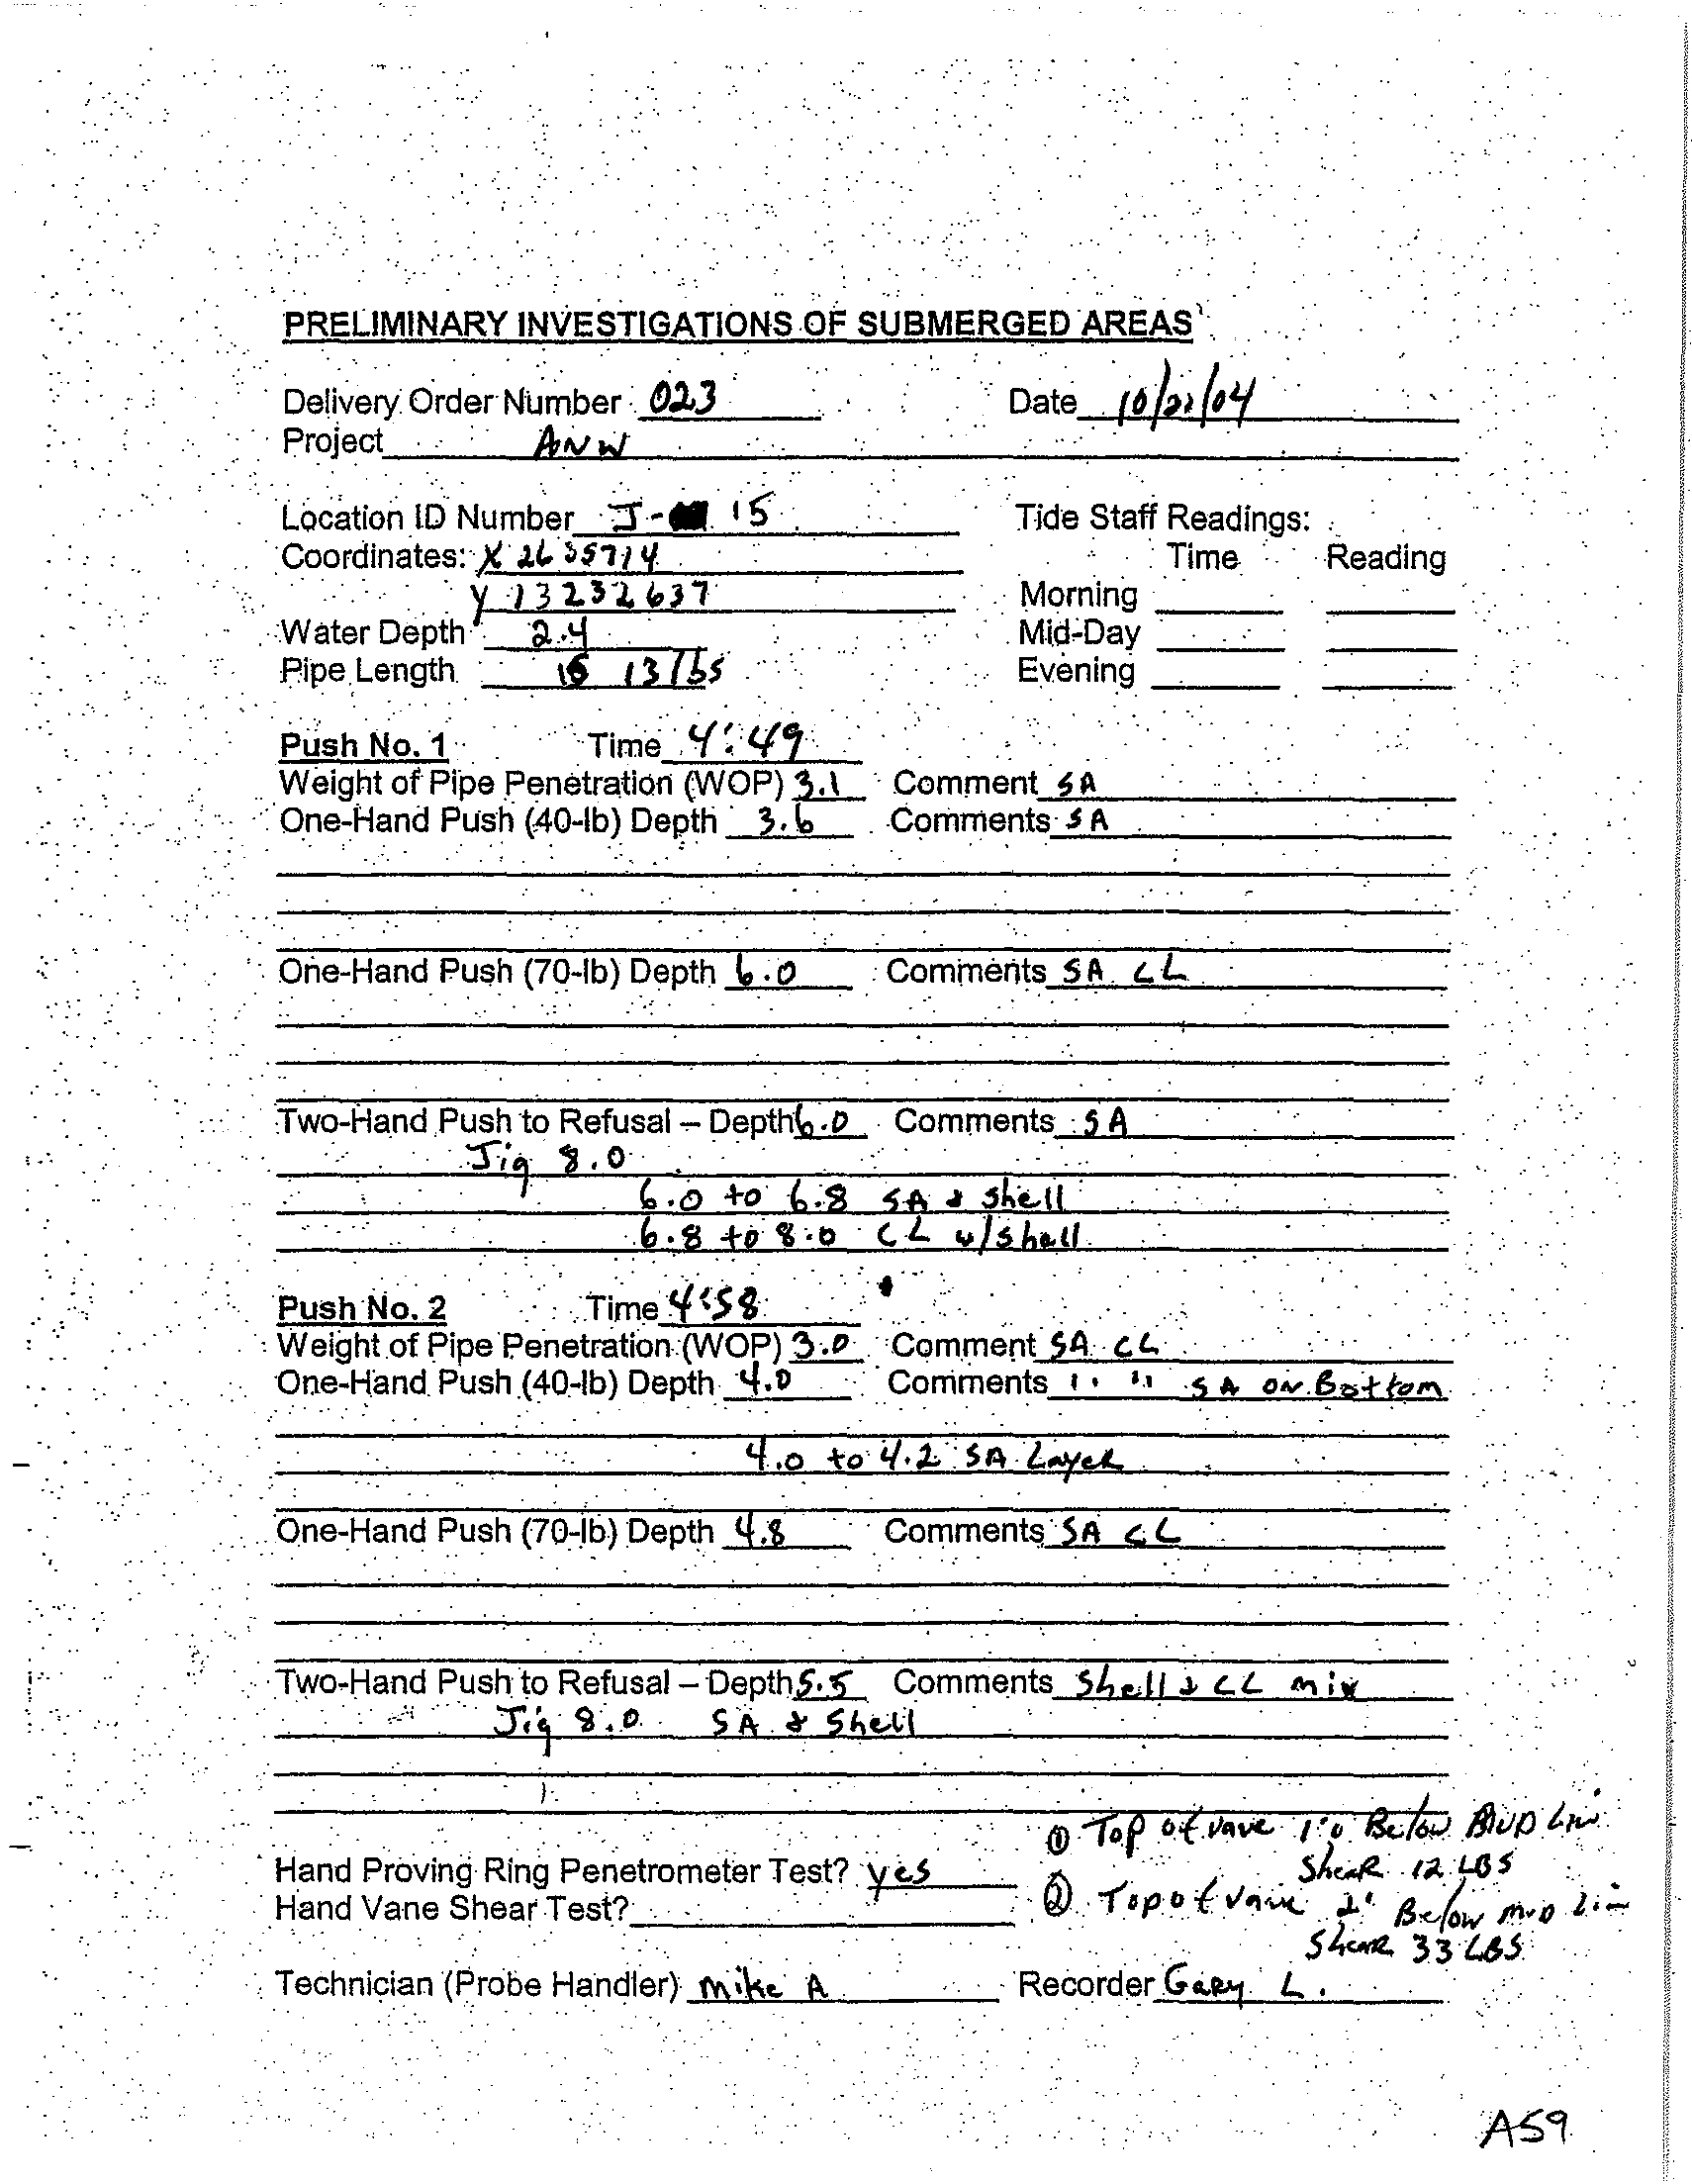 PRELIMINARY INVESTIGATIONS OF SUBMERGED AREAS
Delivery Order Number 023 Date 10/22/04
Project ANW
Location ID Number J- 15 Tide Staff Readings:
Coordinates: X 2635714 Time Reading
Y 13232637 Morning
Water Depth 2.4 Mid-Day
Pipe Length 15 13 lbs Evening
Push No. 1 Time 4:49
Weight of Pipe Penetration (WOP) 3.1 Comment SA
One-Hand Push (40-lb) Depth 3.6 Comments SA
One-Hand Push (70-lb) Depth 6.0 Comments SA CL
Two-Hand Push to Refusal – Depth 6.0 Comments SA
Jig 8.0
6.0 to 6.8 SA & Shell
6.8 to 8.0 CL w/shell
Push No. 2 Time 4:58
Weight of Pipe Penetration (WOP) 3.0 Comment SA CL
One-Hand Push (40-lb) Depth 4.0 Comments " " SA on Bottom
4.0 to 4.2 SA Layer
One-Hand Push (70-lb) Depth 4.8 Comments SA CL
Two-Hand Push to Refusal – Depth 5.5 Comments Shell & CL mix
Jig 8.0 SA & Shell
① Top of vane 1'0 Below MUD Lin
Hand Proving Ring Penetrometer Test? yes Shear 12 LBS
Hand Vane Shear Test? ② Top of vane 2' Below MUD Lin
Shear 33 LBS
Technician (Probe Handler) Mike A Recorder Gary L.
A59